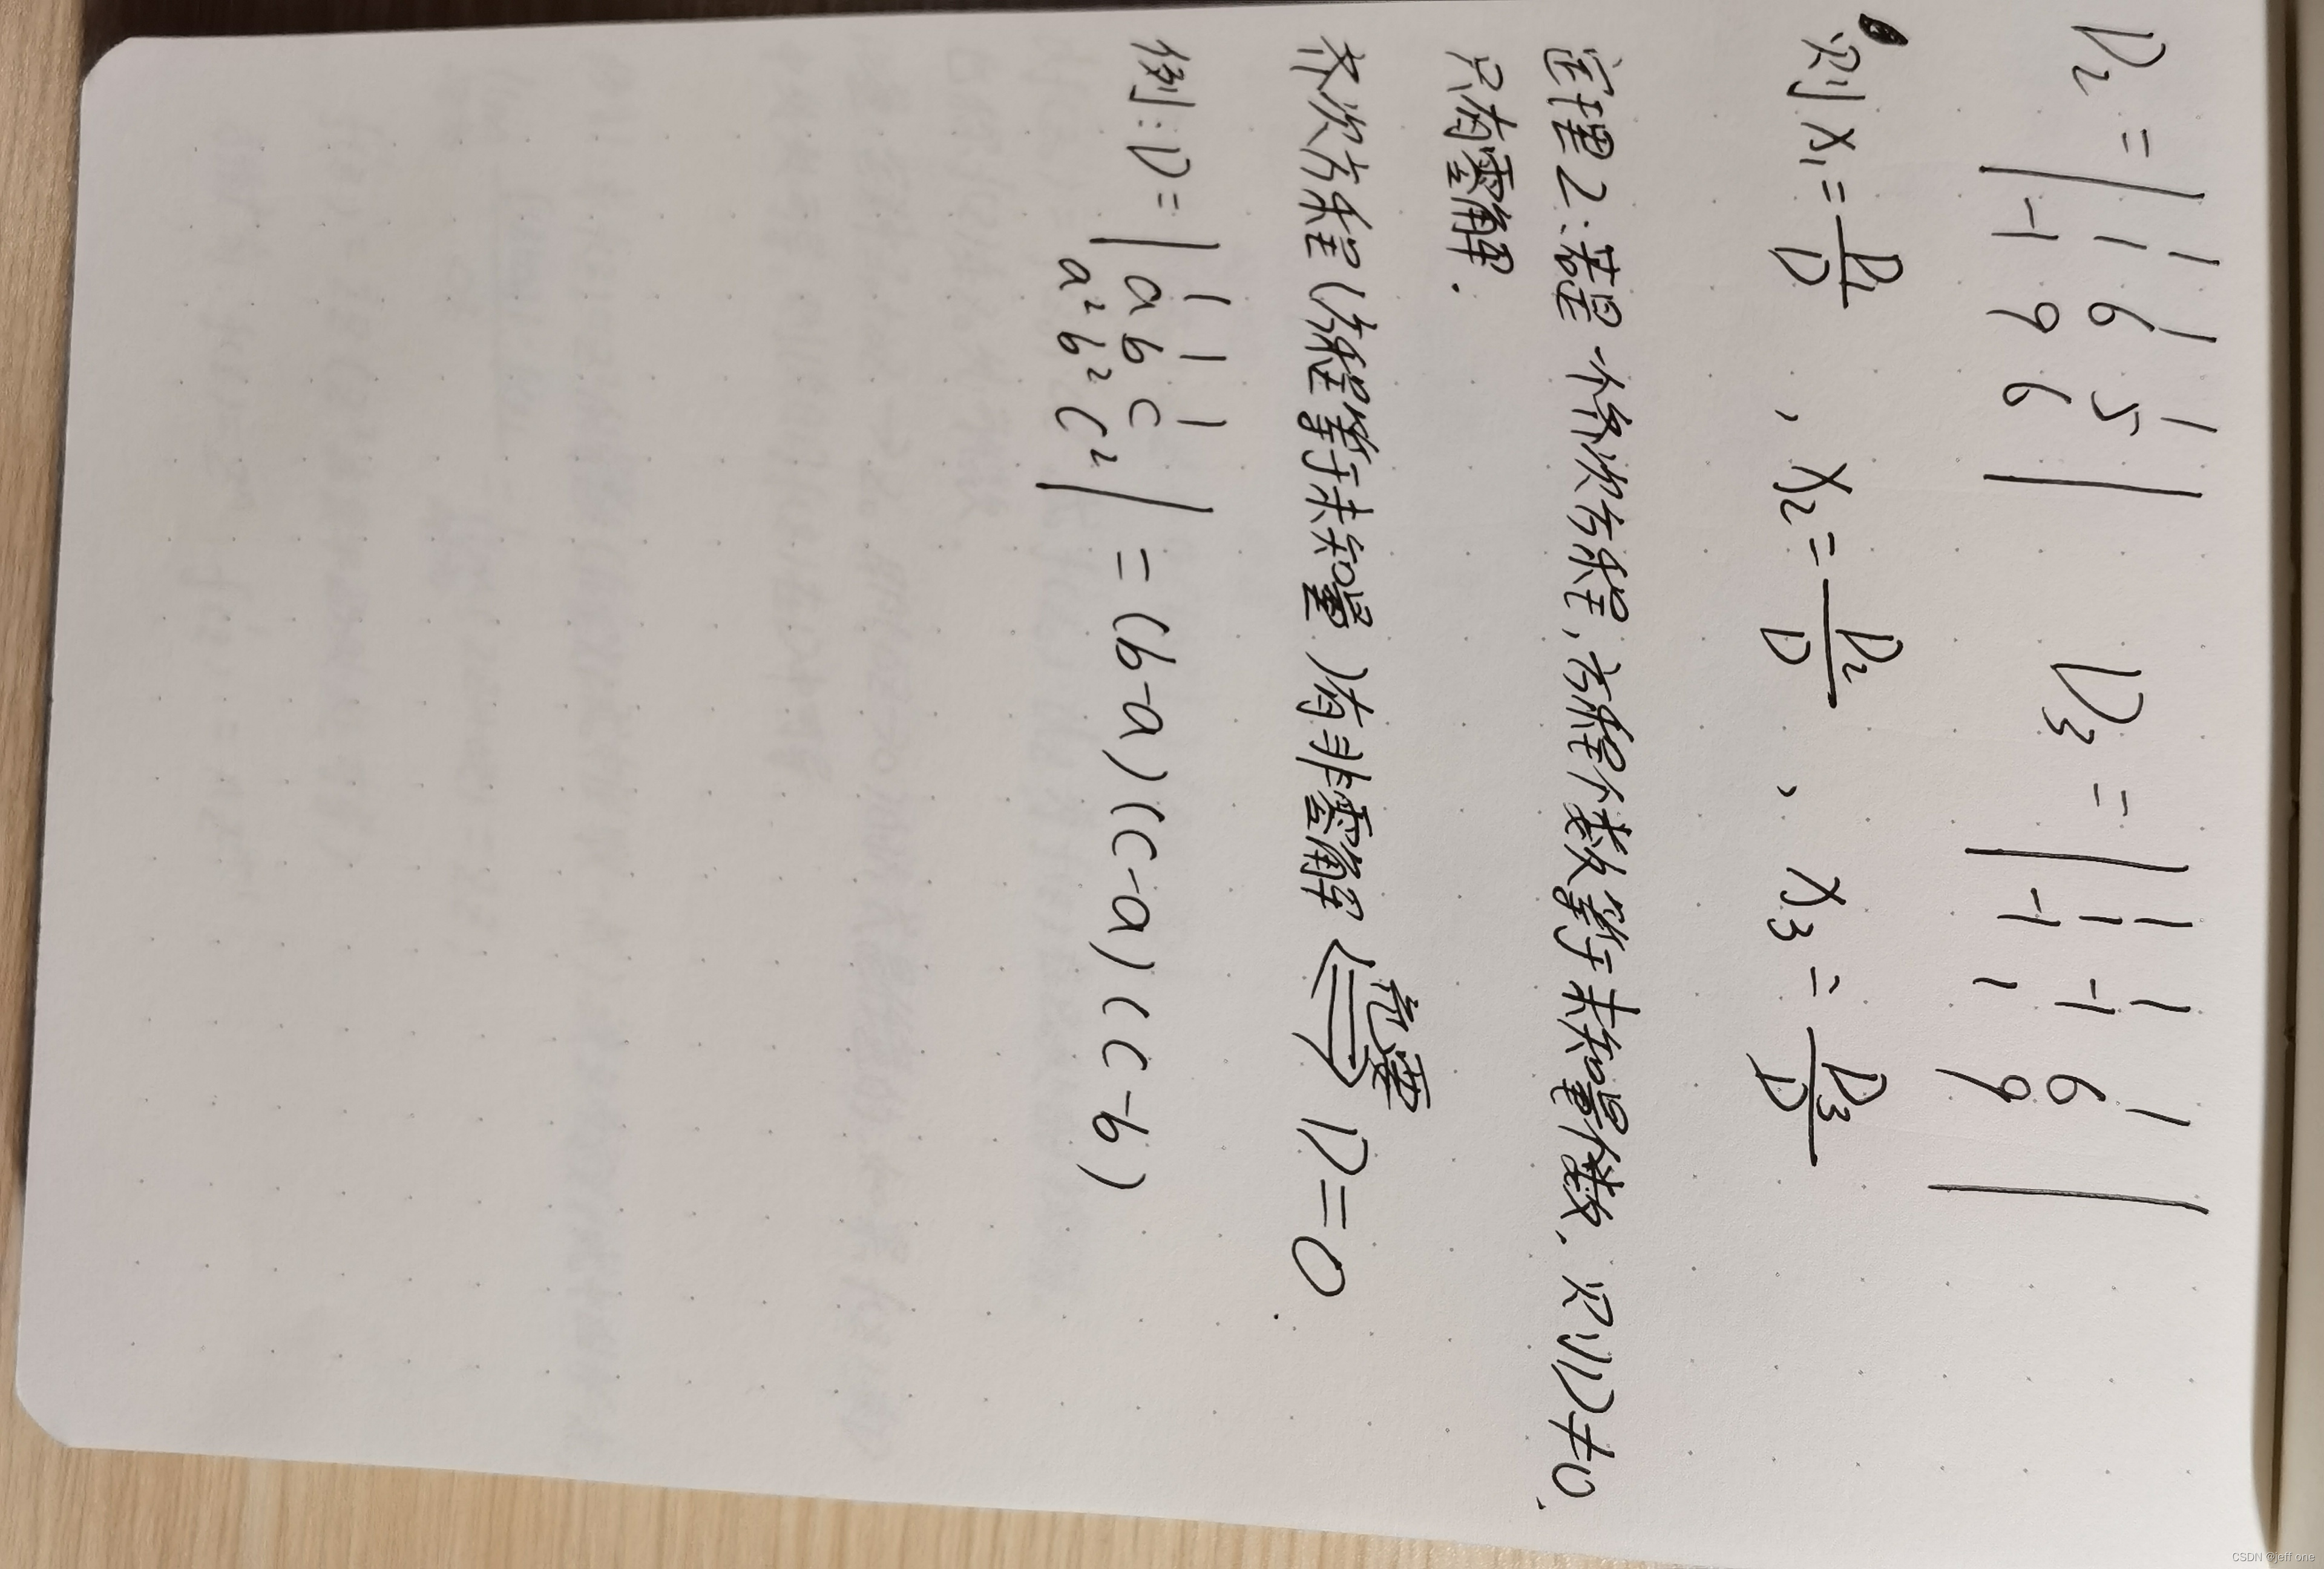 D₂ = | 1 1 1    D₃ = | 1 1 1
1 6 5    1 -1 6
-1 9 6 |    -1 1 9 |
则 x₁ = D₁/D , x₂ = D₂/D , x₃ = D₃/D
定理2: 若是一个齐次方程, 方程个数等于未知量个数, 则 D≠0.
只有零解.
齐次方程 (方程等于未知量) 有非零解 ⟺ 充要 D=0.
例: D = | 1 1 1
a b c
a² b² c² | = (b-a)(c-a)(c-b)
CSDN @jeff one